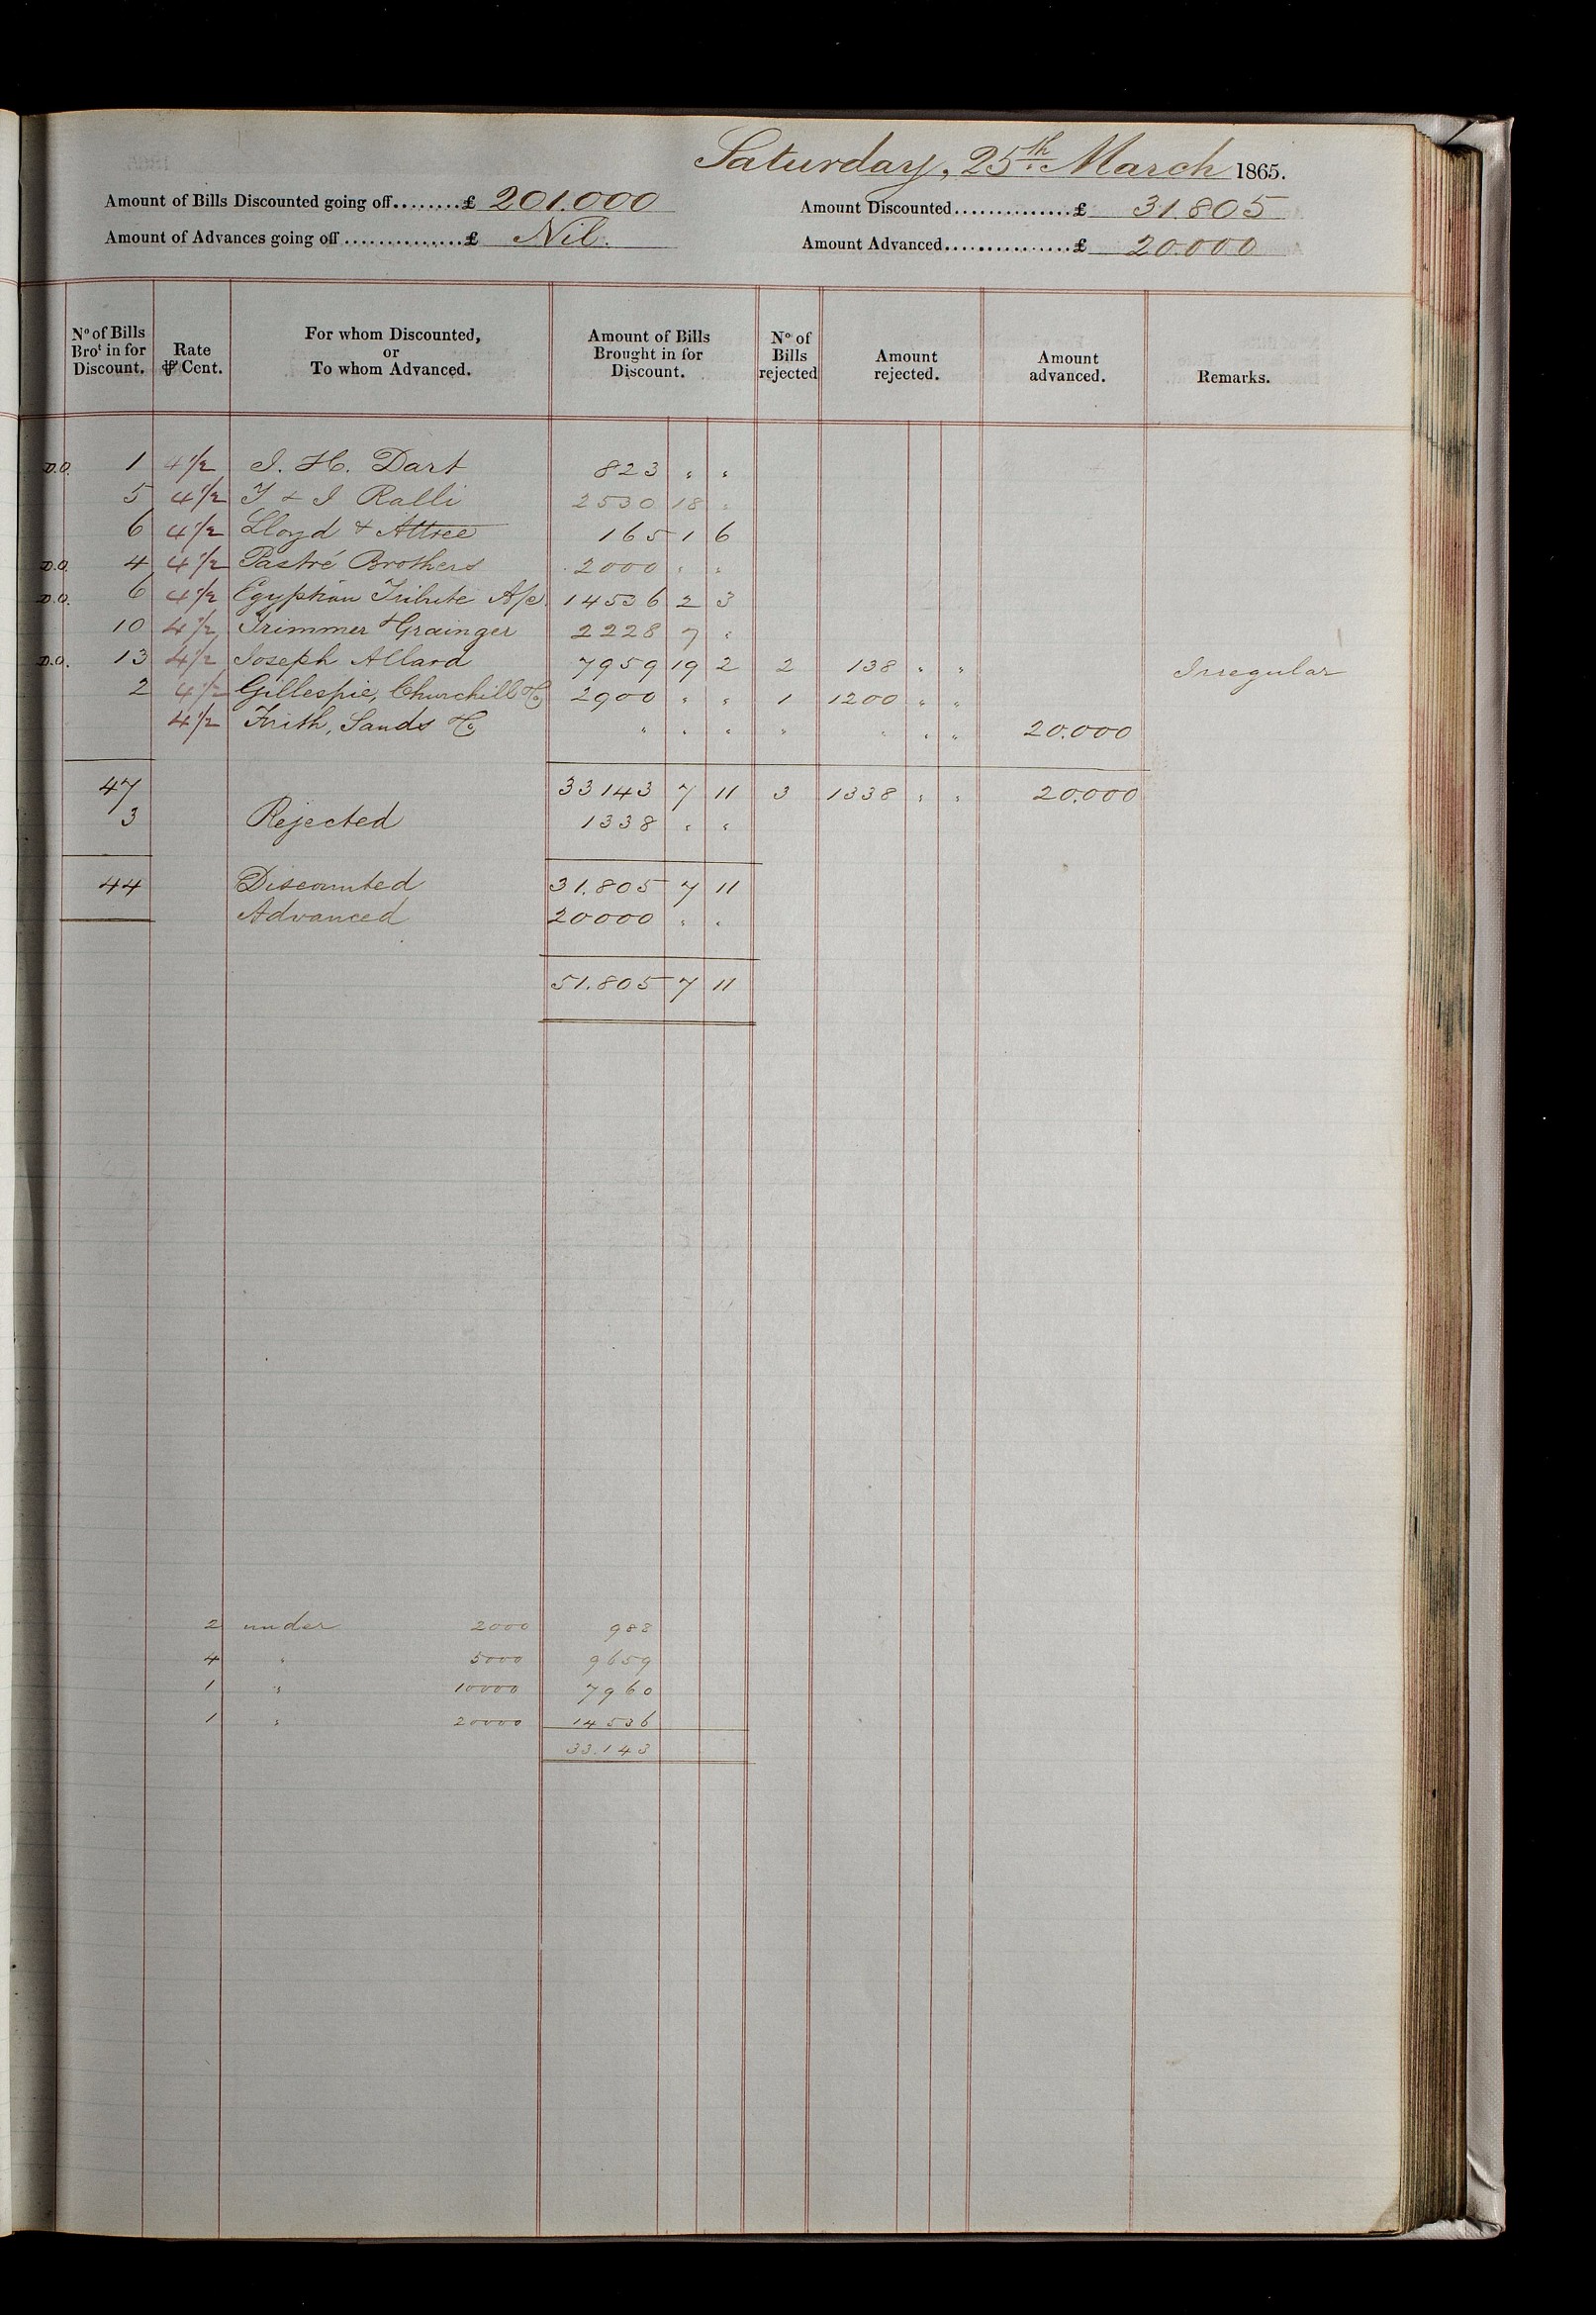 Saturday, 25th March 1865.
Amount of Bills Discounted going off........£ 201.000 Amount Discounted..............£ 31.805
Amount of Advances going off...............£ Nil. Amount Advanced................£ 20.000
No of Bills Brot in for Discount. Rate ⅌ Cent. For whom Discounted, or To whom Advanced. Amount of Bills Brought in for Discount. No of Bills rejected Amount rejected. Amount advanced. Remarks.
D.O. 1 4 1/2 J. H. Dart 823 " "
5 4 1/2 T & J Ralli 2530 18 "
6 4 1/2 Lloyd & Attree 165 1 6
D.O. 4 4 1/2 Pastré Brothers 2000 " "
D.O. 6 4 1/2 Egyptian Tribute A/c 14536 2 3
10 4 1/2 Trimmer & Grainger 2228 7 "
D.O. 13 4 1/2 Joseph Allard 7959 19 2 2 138 " " Irregular
2 4 1/2 Gillespie, Churchill & Co 2900 " " 1 1200 " "
4 1/2 Frith, Sands & Co " " " " " " " 20.000
47 33143 7 11 3 1338 " " 20.000
3 Rejected 1338 " "
44 Discounted 31.805 7 11
Advanced 20000 " "
51.805 7 11
2 under 2000 988
4 " 5000 9659
1 " 10000 7960
1 " 20000 14536
33.143